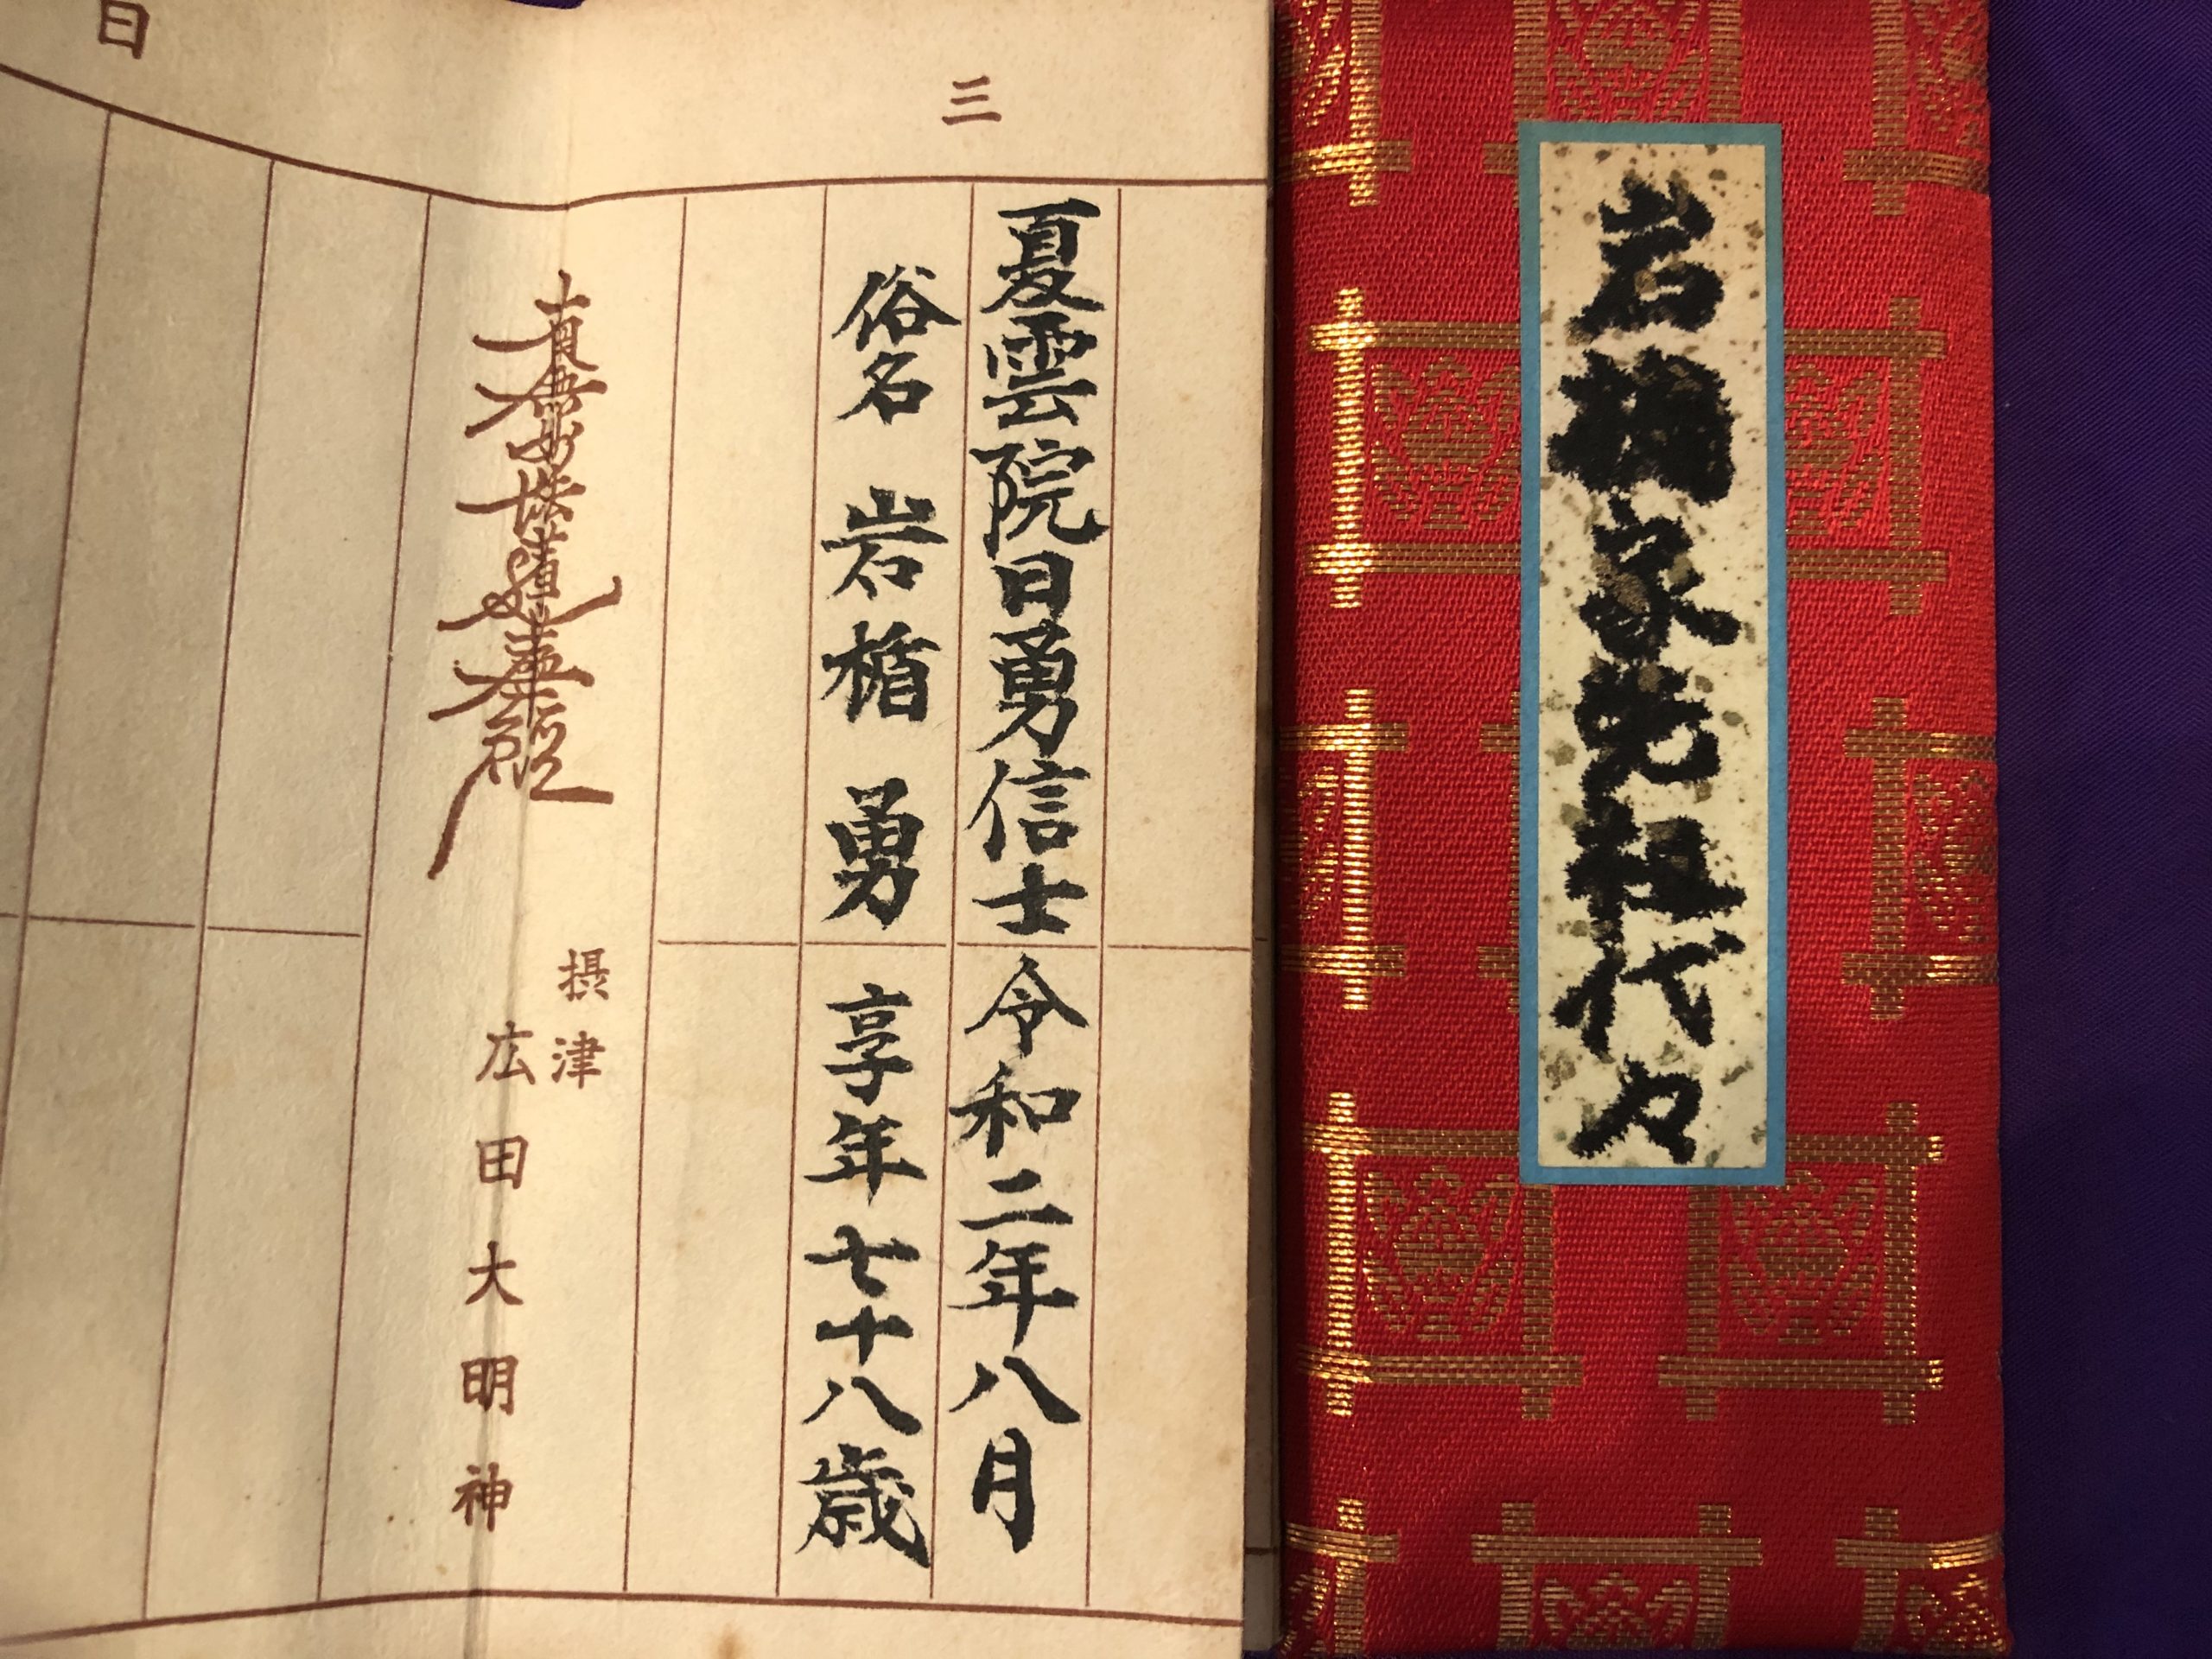 岩楯家先祖代々
三
夏雲院日勇信士 令和二年八月
俗名 岩楯 勇 享年七十八歳
摂津
広田大明神
日